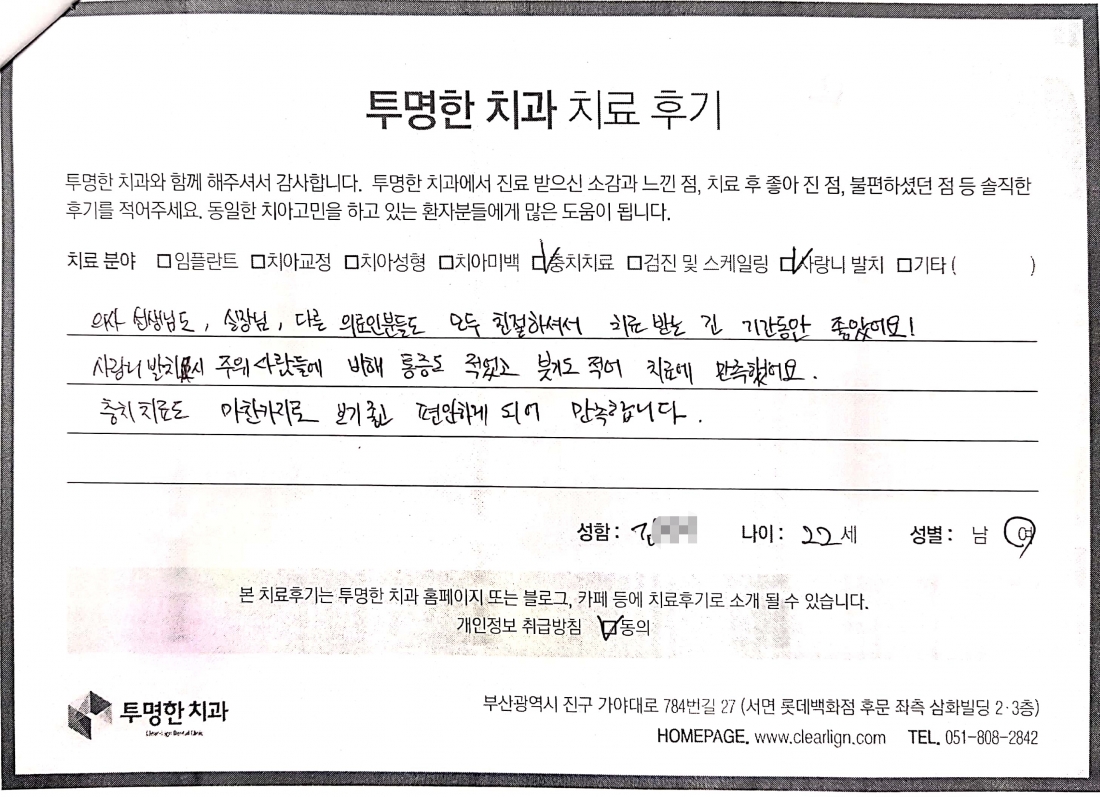 투명한 치과 치료 후기
투명한 치과와 함께 해주셔서 감사합니다. 투명한 치과에서 진료 받으신 소감과 느낀 점, 치료 후 좋아 진 점, 불편하셨던 점 등 솔직한
후기를 적어주세요. 동일한 치아고민을 하고 있는 환자분들에게 많은 도움이 됩니다.
치료 분야 □임플란트 □치아교정 □치아성형 □치아미백 ☑충치치료 □검진 및 스케일링 ☑사랑니 발치 □기타 ( )
의사 선생님도, 실장님, 다른 의료인분들도 모두 친절하셔서 치료 받는 긴 기간동안 좋았어요!
사랑니 발치시 주위 사람들에 비해 통증도 적었고 붓기도 적어 치료에 만족했어요.
충치 치료도 마찬가지로 보기 좋고 편안하게 되어 만족합니다.
성함: 김 나이: 22 세 성별: 남 여
본 치료후기는 투명한 치과 홈페이지 또는 블로그, 카페 등에 치료후기로 소개 될 수 있습니다.
개인정보 취급방침 ☑동의
투명한 치과
Clear-lign Dental Clinic
부산광역시 진구 가야대로 784번길 27 (서면 롯데백화점 후문 좌측 삼화빌딩 2·3층)
HOMEPAGE. www.clearlign.com TEL. 051-808-2842